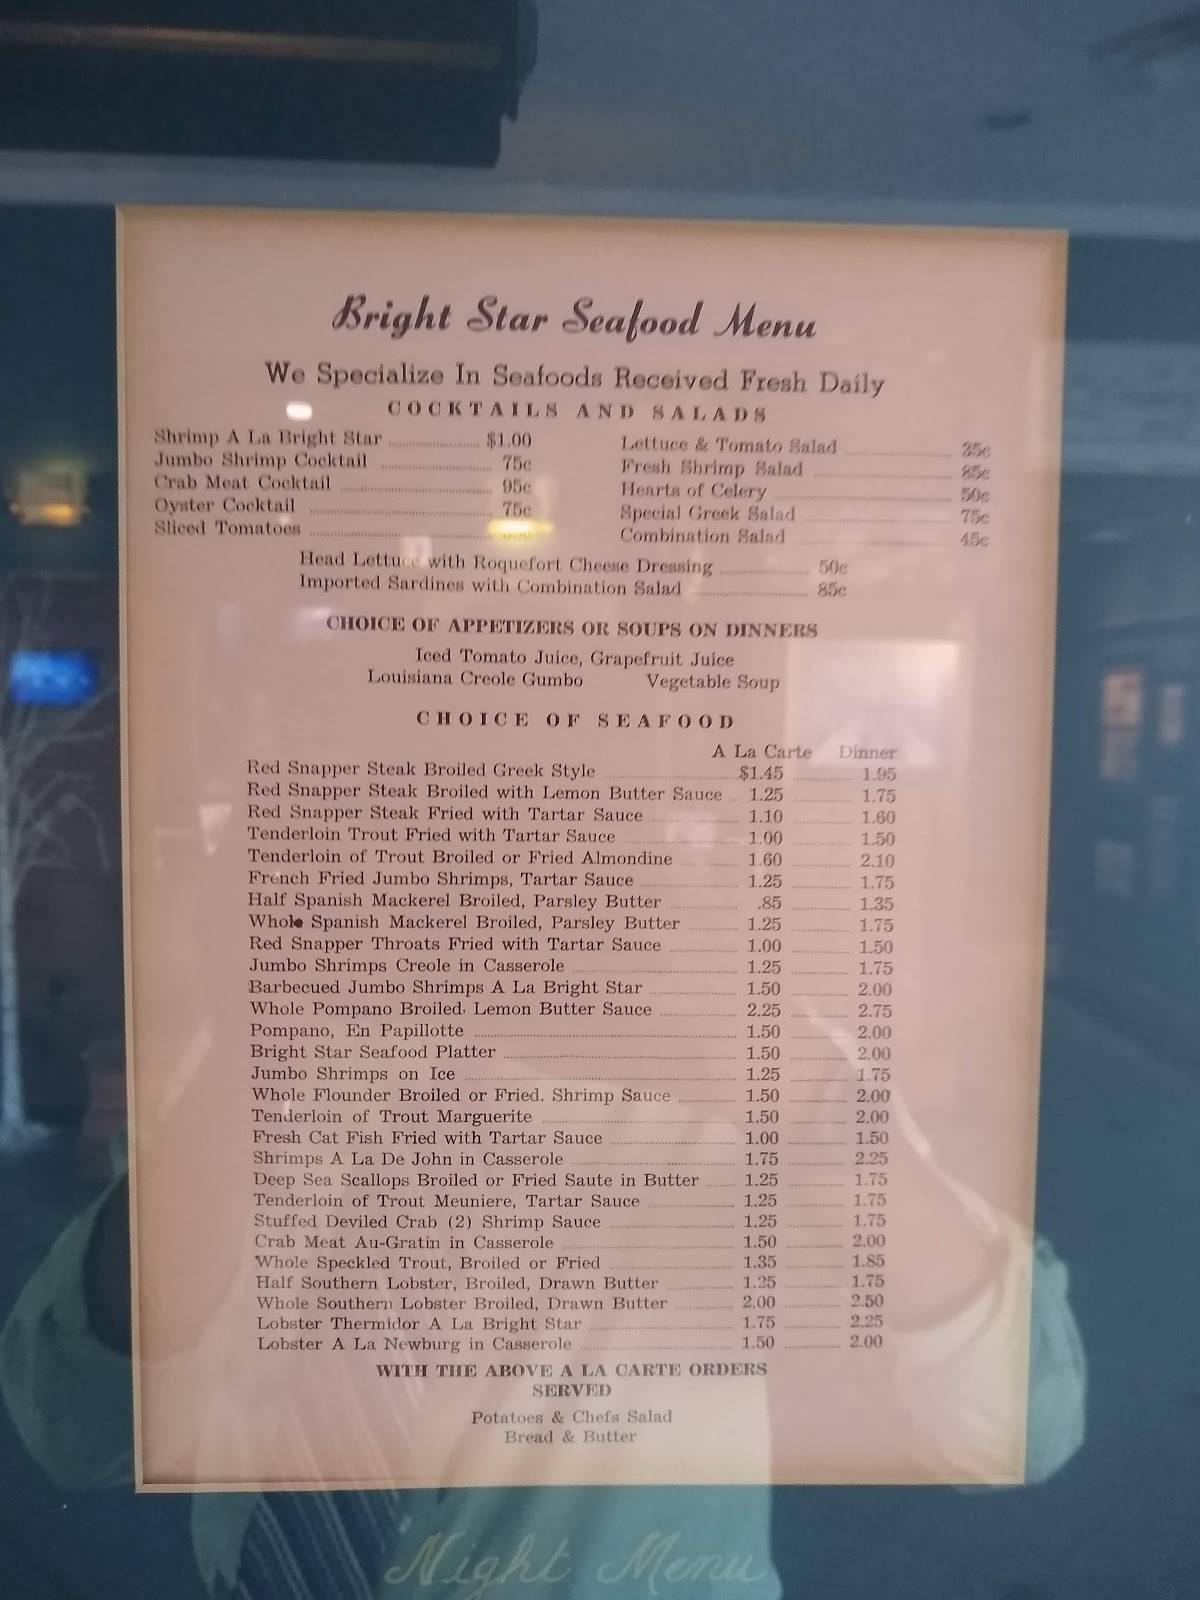 Bright Star Seafood Menu
We Specialize In Seafoods Received Fresh Daily
COCKTAILS AND SALADS
Shrimp A La Bright Star $1.00
Jumbo Shrimp Cocktail 75c
Crab Meat Cocktail 95c
Oyster Cocktail 75c
Sliced Tomatoes
Lettuce & Tomato Salad 35c
Fresh Shrimp Salad 85c
Hearts of Celery 50c
Special Greek Salad 75c
Combination Salad 45c
Head Lettuce with Roquefort Cheese Dressing 50c
Imported Sardines with Combination Salad 85c
CHOICE OF APPETIZERS OR SOUPS ON DINNERS
Iced Tomato Juice, Grapefruit Juice
Louisiana Creole Gumbo Vegetable Soup
CHOICE OF SEAFOOD
A La Carte Dinner
Red Snapper Steak Broiled Greek Style $1.45 1.95
Red Snapper Steak Broiled with Lemon Butter Sauce 1.25 1.75
Red Snapper Steak Fried with Tartar Sauce 1.10 1.60
Tenderloin Trout Fried with Tartar Sauce 1.00 1.50
Tenderloin of Trout Broiled or Fried Almondine 1.60 2.10
French Fried Jumbo Shrimps, Tartar Sauce 1.25 1.75
Half Spanish Mackerel Broiled, Parsley Butter .85 1.35
Whole Spanish Mackerel Broiled, Parsley Butter 1.25 1.75
Red Snapper Throats Fried with Tartar Sauce 1.00 1.50
Jumbo Shrimps Creole in Casserole 1.25 1.75
Barbecued Jumbo Shrimps A La Bright Star 1.50 2.00
Whole Pompano Broiled, Lemon Butter Sauce 2.25 2.75
Pompano, En Papillotte 1.50 2.00
Bright Star Seafood Platter 1.50 2.00
Jumbo Shrimps on Ice 1.25 1.75
Whole Flounder Broiled or Fried. Shrimp Sauce 1.50 2.00
Tenderloin of Trout Marguerite 1.50 2.00
Fresh Cat Fish Fried with Tartar Sauce 1.00 1.50
Shrimps A La De John in Casserole 1.75 2.25
Deep Sea Scallops Broiled or Fried Saute in Butter 1.25 1.75
Tenderloin of Trout Meuniere, Tartar Sauce 1.25 1.75
Stuffed Deviled Crab (2) Shrimp Sauce 1.25 1.75
Crab Meat Au-Gratin in Casserole 1.50 2.00
Whole Speckled Trout, Broiled or Fried 1.35 1.85
Half Southern Lobster, Broiled, Drawn Butter 1.25 1.75
Whole Southern Lobster Broiled, Drawn Butter 2.00 2.50
Lobster Thermidor A La Bright Star 1.75 2.25
Lobster A La Newburg in Casserole 1.50 2.00
WITH THE ABOVE A LA CARTE ORDERS
SERVED
Potatoes & Chefs Salad
Bread & Butter
Night Menu